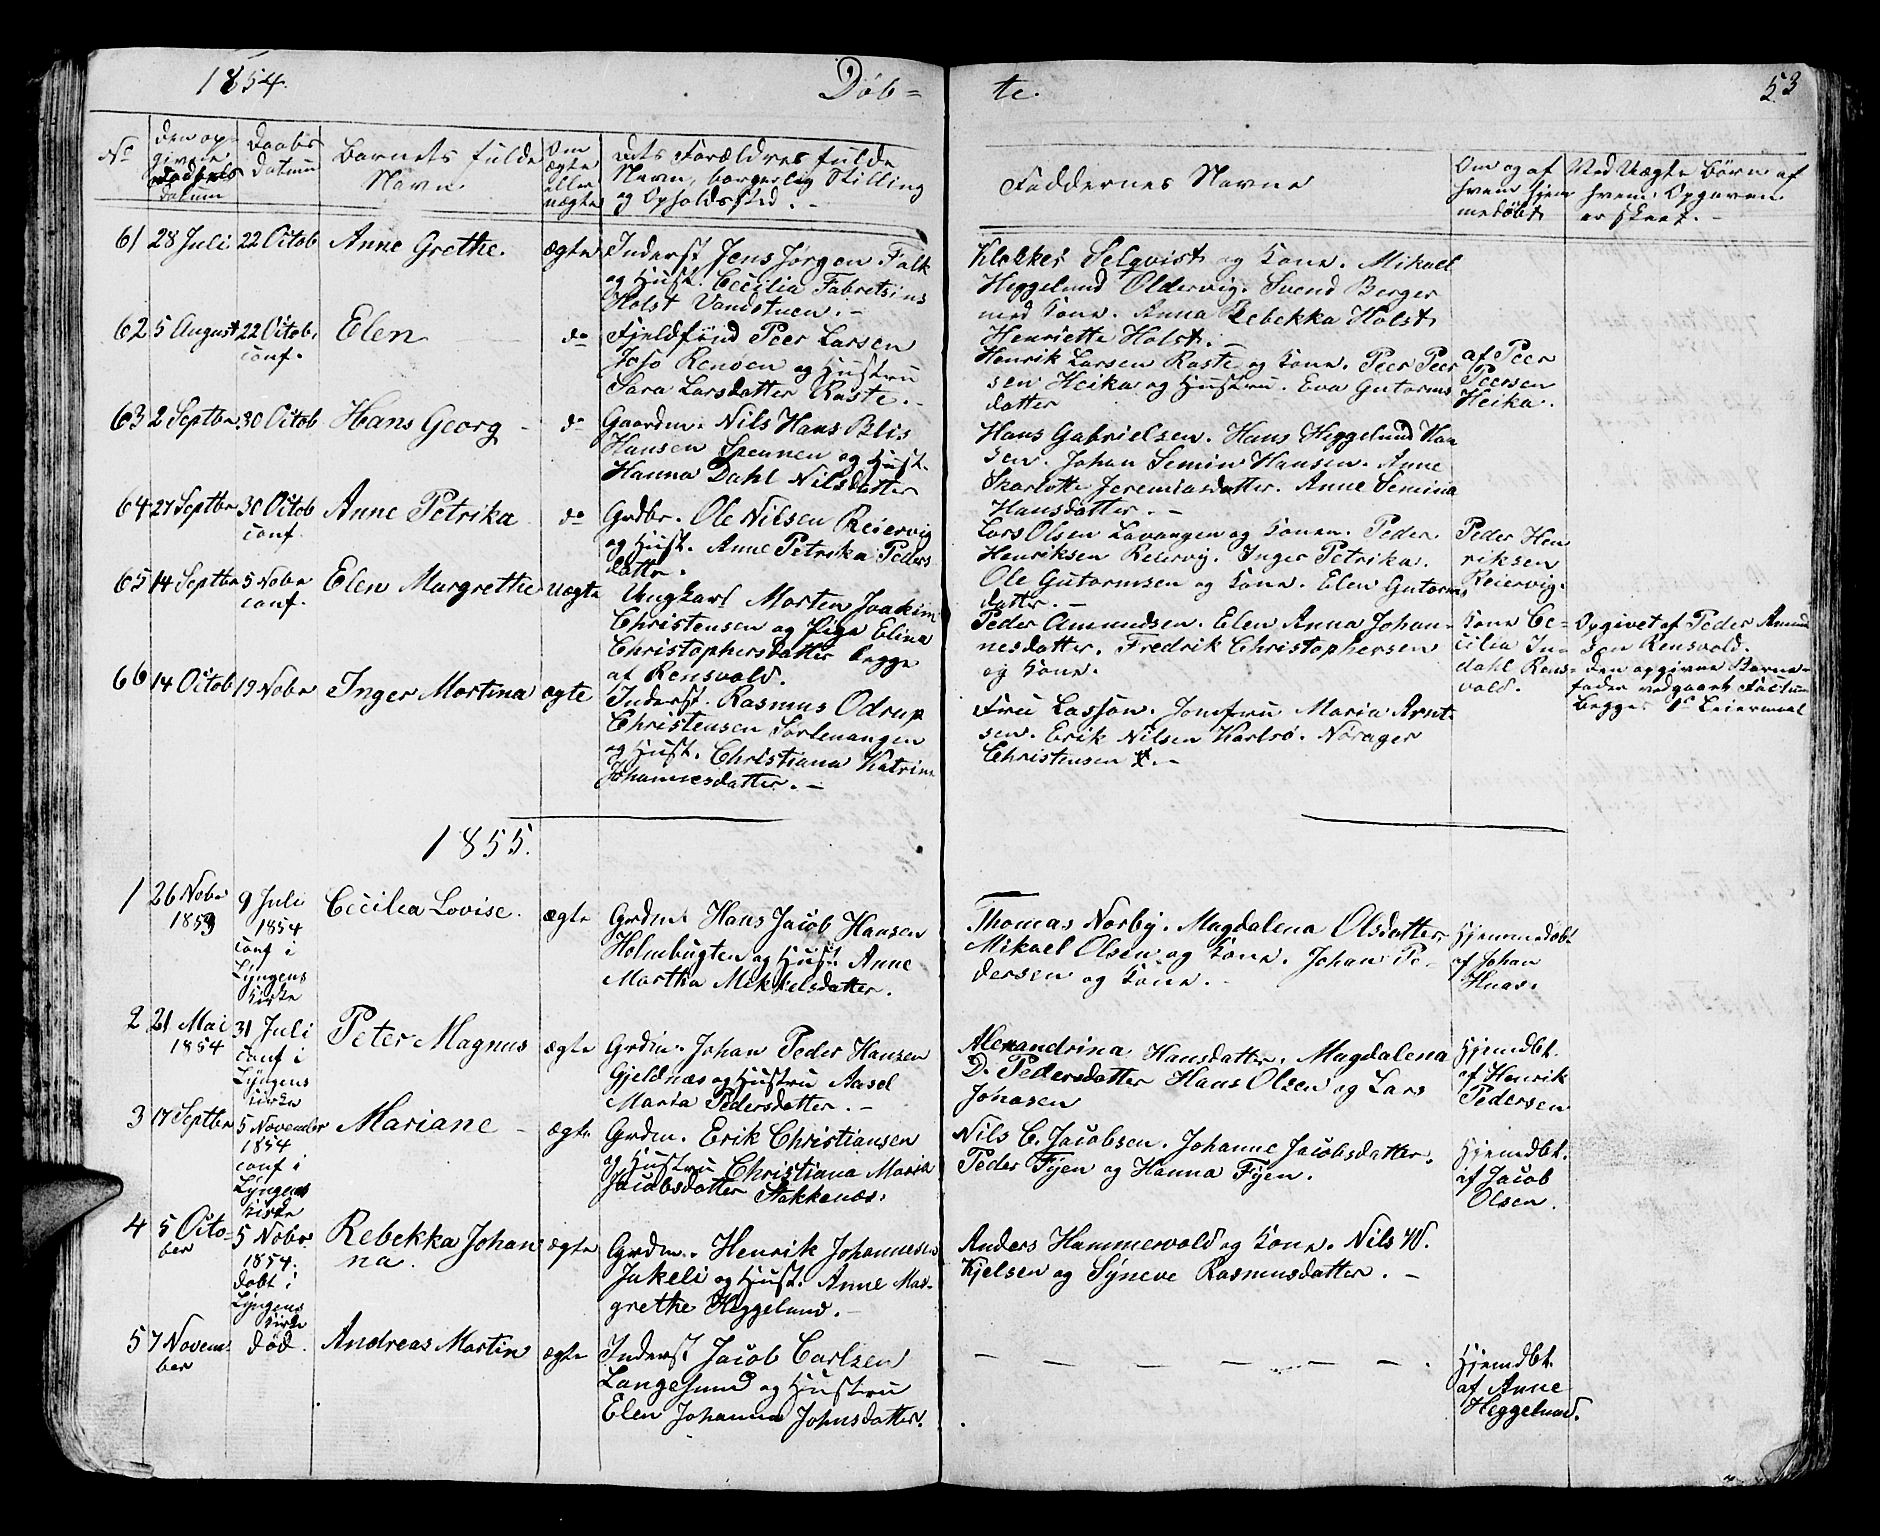 1854.
Døb=
te.
53
No
Den op-
givne
Fødsels
Datum
Daabs
Datum
Barnets fulde
Navn
Om
ægte
eller
uægte
Dets Forældres fulde
Navn, borgerlig Stilling
og Opholdssted. -
Faddernes Navne
Om og af
hvem hjem
medøbt
Ved Uægte Børn af
hvem Opgaven
er skeet. -
61 28 Juli 22 Octob Anne Grethe. ægte
Inderst Jens Jørgen Falk
og Hust. Cecilia Fabretsius
Holst Vandstuen. -
Klokker Selqvist og Kone. Mikael
Heggelund Oldervig. Svend Berger
med Kone. Anna Rebekka Holst
Henriette Holst. -
62 5 August 22 Octob. conf. Elen do
Fjeldfind Peer Larsen
Joso Rensen og Hustru
Sara Larsdatter Raste. -
Henrik Larsen Raste og Kone. Peer Peer
sen Heika og Hustru. Eva Gutorms
datter
af Peer
Peersen
Heika.
63 2 Septbr 30 Octob Hans Georg - do
Gaardm. Nils Hans Blis
Hansen Spennen og Hust.
Hanna Dahl Nilsdatter
Hans Gabrielsen. Hans Heggelund Han
sen. Johan Semin Hansen. Anne
Skarlotte Jeremiasdatter. Anne Semina
Hansdatter. -
64 27 Septbr 30 Octob conf. Anne Petrika do
Grdbr. Ole Nilsen Reiervig
og Hust. Anne Petrika Peders
datter.
Lars Olsen Lavangen og Konen. Peder
Henriksen Reiervig. Inger Petrika.
Ole Gutormsen og Kone. Elen Gutorms
datter. -
Peder Hen
riksen
Reiervig.
65 14 Septbr 5 Nobr conf. Elen Margrethe uægte
Ungkarl Morten Joakim
Christensen og Pige Elina
Christophersdatter begge
af Rensvold.
Peder Amundsen. Elen Anna Johan-
nesdatter. Fredrik Christophersen
og Kone.
Kone Ce=
cilia In=
dahl Rens=
vold.
Opgivet af Peder Amund
sen Rensvold.
Den opgivne Barne-
fader vedgaaet Factum
Begges 1ste Leiermaal
66 14 Octob 19 Nobr Inger Martina ægte
Inderst. Rasmus Odrup
Christensen Sørlenangen
og Hust. Christiana Katrine
Johannesdatter. -
Fru Lassøn. Jomfru Maria Arnt-
sen. Erik Nilsen Karlsø. Norager
Christensen. -
1855.
1 26 Nobr 1853 9 Juli 1854 conf i Lyngens Kirke Cecilia Lovise. ægte
Grdm. Hans Jacob Hansen
Holmbugten og Hust. Anne
Martha Mikkelsdatter.
Thomas Norby. Magdalena Olsdatter.
Mikael Olsen og Kone. Johan Pe-
dersen og Kone. -
Hjemmedøbt
af Johan
Huas.
2 21 Mai 1854 31 Juli conf i Lyngens Kirke Peter Magnus ægte
Grdm. Johan Peder Hansen
Gjeldnæs og Hustru Aasel
Maria Pedersdatter. -
Alexandrina Hansdatter. Magdalena
D. Pedersdatter Hans Olsen og Lars
Jonasen
Hjemdbt.
af Henrik
Pedersen
3 17 Septber 5 November 1854 conf i Lyngens Kirke Mariane - ægte
Grdm. Erik Christiansen
og Hustru Christiana Maria
Jacobsdatter Stakkenæs.
Nils C. Jacobsen. Johanne Jacobsdatter.
Peder Fyen og Hanna Fyen.
Hjemdbt.
af Jacob
Olsen.
4 5 Octo-
ber 5 Nobr 1854. døbt i Lyngens Kirke Rebekka Johan
na. ægte
Grdm. Henrik Johannesen
Jakeli og Hust. Anne Mar-
grethe Heggelund. -
Anders Hammervold og Kone. Nils W.
Kjelsen og Syneve Rasmusdatter. -
5 7 Novem-
ber død. Andreas Martin ægte
Inderst Jacob Carlsen
Langesund og Hustru
Elen Johanna Johnsdatter.
- - - - - -
Hjemdbt.
af Anne
Heggelund.